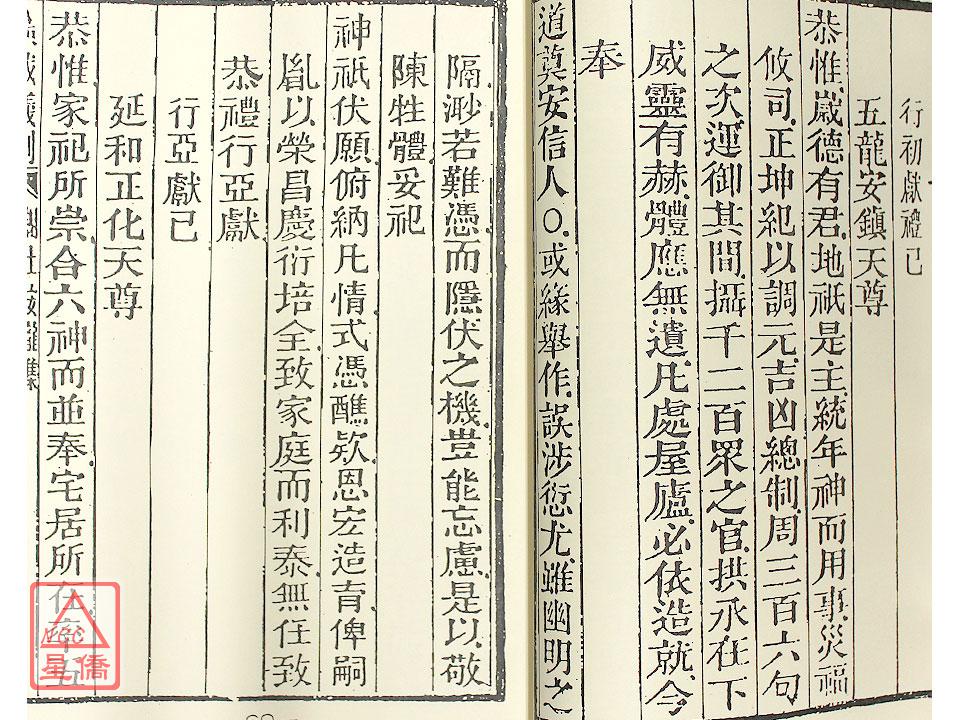 行初獻禮已
五龍安鎮天尊
恭惟歲德有君地祇是主統年神而用事災福
攸司正坤紀以調元吉凶總制周三百六旬
之次運御其間攝千二百眾之官拱承在下
威靈有赫體應無遺凡處屋廬必依造就今
奉
道奠安信人○或緣舉作誤涉愆尤雖幽明之
隔渺若難憑而隱伏之機豈能忘慮是以敬
陳牲醴妥祀
神祇伏願俯納凡情式憑醮欵恩宏造育俾嗣
胤以榮昌慶衍培全致家庭而利泰無任致
恭禮行亞獻
行亞獻已
延和正化天尊
恭惟家祀所崇合六神而並奉宅居所在
星僑